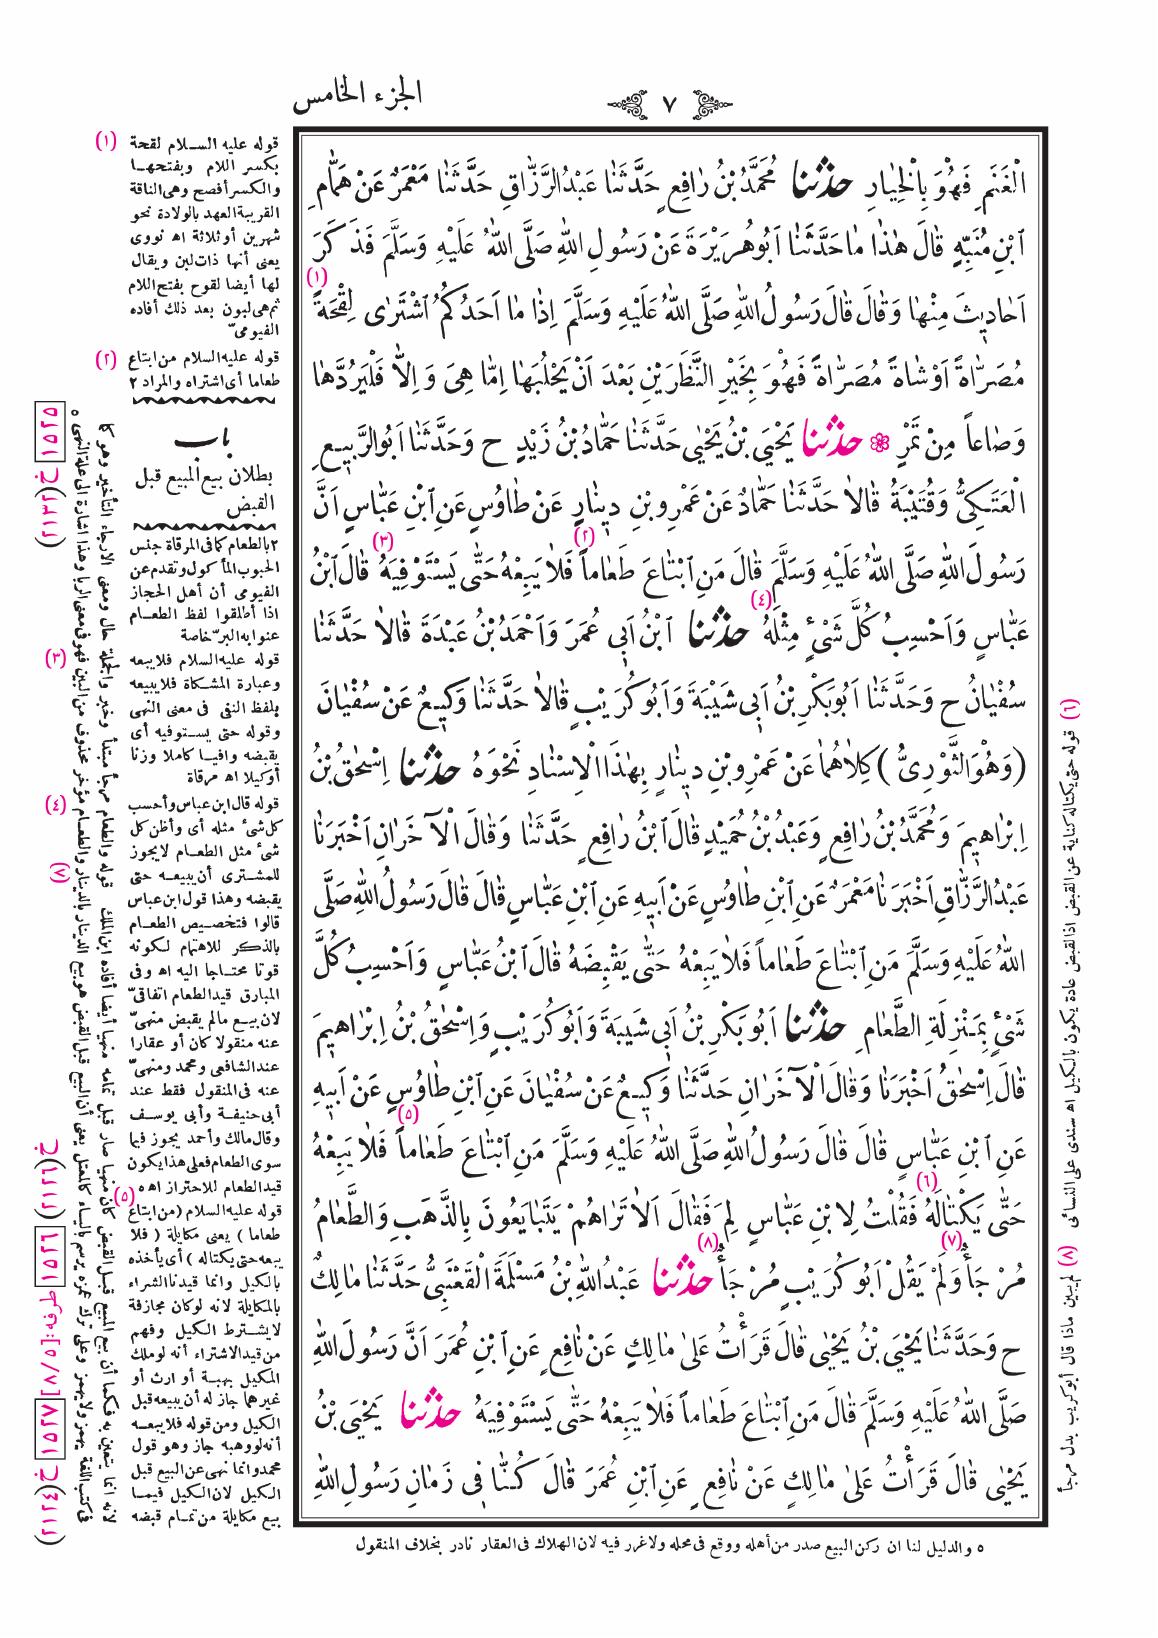 الجزء الخامس
٧
الْغَنَمِ فَهْوَ بِالْخِيَارِ حدثنا مُحَمَّدُ بْنُ رَافِعٍ حَدَّثَنَا عَبْدُ الرَّزَّاقِ حَدَّثَنَا مَعْمَرٌ عَنْ هَمَّامِ
ابْنِ مُنَبِّهٍ قَالَ هٰذَا مَا حَدَّثَنَا اَبُو هُرَيْرَةَ عَنْ رَسُولِ اللّٰهِ صَلَّى اللّٰهُ عَلَيْهِ وَسَلَّمَ فَذَكَرَ
اَحَادِيثَ مِنْهَا وَقَالَ قَالَ رَسُولُ اللّٰهِ صَلَّى اللّٰهُ عَلَيْهِ وَسَلَّمَ اِذَا مَا اَحَدُكُمُ اشْتَرٰى لِقْحَةً (١)
مُصَرَّاةً اَوْ شَاةً مُصَرَّاةً فَهْوَ بِخَيْرِ النَّظَرَيْنِ بَعْدَ اَنْ يَحْلُبَهَا اِمَّا هِىَ وَاِلَّا فَلْيَرُدَّهَا
وَصَاعاً مِنْ تَمْرٍ ❁ حدثنا يَحْيَى بْنُ يَحْيٰى حَدَّثَنَا حَمَّادُ بْنُ زَيْدٍ ح وَحَدَّثَنَا اَبُو الرَّبِيعِ
الْعَتَكِىُّ وَقُتَيْبَةُ قَالَا حَدَّثَنَا حَمَّادٌ عَنْ عَمْرِو بْنِ دِينَارٍ عَنْ طَاوُسٍ عَنِ ابْنِ عَبَّاسٍ اَنَّ
رَسُولَ اللّٰهِ صَلَّى اللّٰهُ عَلَيْهِ وَسَلَّمَ قَالَ مَنِ ابْتَاعَ طَعَاماً (٢) فَلَا يَبِعْهُ حَتّٰى يَسْتَوْفِيَهُ (٣) قَالَ ابْنُ
عَبَّاسٍ وَاَحْسِبُ كُلَّ شَىْءٍ مِثْلَهُ (٤) حدثنا ابْنُ اَبِى عُمَرَ وَاَحْمَدُ بْنُ عَبْدَةَ قَالَا حَدَّثَنَا
سُفْيَانُ ح وَحَدَّثَنَا اَبُو بَكْرِ بْنُ اَبِى شَيْبَةَ وَاَبُو كُرَيْبٍ قَالَا حَدَّثَنَا وَكِيعٌ عَنْ سُفْيَانَ
(وَهْوَ الثَّوْرِىُّ) كِلَاهُمَا عَنْ عَمْرِو بْنِ دِينَارٍ بِهٰذَا الْاِسْنَادِ نَحْوَهُ حدثنا اِسْحٰقُ بْنُ
اِبْرَاهِيمَ وَمُحَمَّدُ بْنُ رَافِعٍ وَعَبْدُ بْنُ حُمَيْدٍ قَالَ ابْنُ رَافِعٍ حَدَّثَنَا وَقَالَ الْآخَرَانِ اَخْبَرَنَا
عَبْدُ الرَّزَّاقِ اَخْبَرَنَا مَعْمَرٌ عَنِ ابْنِ طَاوُسٍ عَنْ اَبِيهِ عَنِ ابْنِ عَبَّاسٍ قَالَ قَالَ رَسُولُ اللّٰهِ صَلَّى
اللّٰهُ عَلَيْهِ وَسَلَّمَ مَنِ ابْتَاعَ طَعَاماً فَلَا يَبِعْهُ حَتّٰى يَقْبِضَهُ قَالَ ابْنُ عَبَّاسٍ وَاَحْسِبُ كُلَّ
شَىْءٍ بِمَنْزِلَةِ الطَّعَامِ حدثنا اَبُو بَكْرِ بْنُ اَبِى شَيْبَةَ وَاَبُو كُرَيْبٍ وَاِسْحٰقُ بْنُ اِبْرَاهِيمَ
قَالَ اِسْحٰقُ اَخْبَرَنَا وَقَالَ الْآخَرَانِ حَدَّثَنَا وَكِيعٌ عَنْ سُفْيَانَ عَنِ ابْنِ طَاوُسٍ عَنْ اَبِيهِ
عَنِ ابْنِ عَبَّاسٍ قَالَ قَالَ رَسُولُ اللّٰهِ صَلَّى اللّٰهُ عَلَيْهِ وَسَلَّمَ مَنِ ابْتَاعَ طَعَاماً (٥) فَلَا يَبِعْهُ
حَتّٰى يَكْتَالَهُ (٦) فَقُلْتُ لِابْنِ عَبَّاسٍ لِمَ فَقَالَ اَلَا تَرَاهُمْ يَتَبَايَعُونَ بِالذَّهَبِ وَالطَّعَامُ
مُرْجَأٌ (٧) وَلَمْ يَقُلْ اَبُو كُرَيْبٍ مُرْجَأٌ (٨) حدثنا عَبْدُ اللّٰهِ بْنُ مَسْلَمَةَ الْقَعْنَبِىُّ حَدَّثَنَا مَالِكٌ
ح وَحَدَّثَنَا يَحْيَى بْنُ يَحْيٰى قَالَ قَرَأْتُ عَلٰى مَالِكٍ عَنْ نَافِعٍ عَنِ ابْنِ عُمَرَ اَنَّ رَسُولَ اللّٰهِ
صَلَّى اللّٰهُ عَلَيْهِ وَسَلَّمَ قَالَ مَنِ ابْتَاعَ طَعَاماً فَلَا يَبِعْهُ حَتّٰى يَسْتَوْفِيَهُ حدثنا يَحْيَى بْنُ
يَحْيٰى قَالَ قَرَأْتُ عَلٰى مَالِكٍ عَنْ نَافِعٍ عَنِ ابْنِ عُمَرَ قَالَ كُنَّا فِى زَمَانِ رَسُولِ اللّٰهِ
(١) قوله عليه السلام لقحة
بكسر اللام وبفتحها
والكسر أفصح وهى الناقة
القريبة العهد بالولادة نحو
شهرين أو ثلاثة اه نووى
يعنى أنها ذات لبن ويقال
لها أيضا لقوح بفتح اللام
ثم هى لبون بعد ذلك أفاده
الفيومىّ
(٢) قوله عليه السلام من ابتاع
طعاما أى اشتراه والمراد ٢
باب
بطلان بيع المبيع قبل
القبض
٢ بالطعام كما فى المرقاة جنس
الحبوب المأكول وتقدم عن
الفيومى أن أهل الحجاز
اذا أطلقوا لفظ الطعام
عنوا به البرّ خاصة
(٣) قوله عليه السلام فلا يبعه
وعبارة المشكاة فلا يبيعه
بلفظ النفى فى معنى النهى
وقوله حتى يستوفيه أى
يقبضه وافيا كاملا وزنا
أو كيلا اه مرقاة
(٤) قوله قال ابن عباس وأحسب
كل شئ مثله أى وأظن كل
شئ مثل الطعام لا يجوز
للمشترى أن يبيعه حتى
يقبضه وهذا قول ابن عباس
قالوا فتخصيص الطعام
بالذكر للاهتمام لكونه
قوتا محتاجا اليه اه وفى
المبارق قيد الطعام اتفاقىّ
لان بيع مالم يقبض منهىّ
عنه منقولا كان أو عقارا
عند الشافعى ومحمد ومنهىّ
عنه فى المنقول فقط عند
أبى حنيفة وأبى يوسف
وقال مالك وأحمد يجوز فيما
سوى الطعام فعلى هذا يكون
قيد الطعام للاحتراز اه ٥
(٥) قوله عليه السلام (من ابتاع
طعاما) يعنى مكايلة (فلا
يبعه حتى يكتاله) أى يأخذه
بالكيل وانما قيدنا الشراء
بالمكايلة لانه لو كان مجازفة
لا يشترط الكيل وفهم
من قيد الاشتراء أنه لو ملك
المكيل بهبة أو ارث أو
غيرهما جاز له أن يبيعه قبل
الكيل ومن قوله فلا يبعه
أنه لو وهبه جاز وهو قول
محمد وانما نهى عن البيع قبل
الكيل لان الكيل فيما
بيع مكايلة من تمام قبضه
لانه انما يتعين به فكما أن بيع المبيع قبل القبض كان منهيا صار قبل تمامه منهيا أيضا أفاده ابن الملك (٧) قوله والطعام مرجأ مبتدأ وخبر والجملة حال ومعنى الارجاء التأخير وهو كما
فى كتب اللغة يهمز ولا يهمز وعلى ترك همزه يرسم بالياء كالمعتل يعنى أن البيع قبل القبض هو بيع الدينار بالدينار والطعام مؤخر محذوف من البين فهو فى معنى الربا وهذا اشارة الى علة النهى ٥
(٦) قوله حتى يكتاله كناية عن القبض اذ القبض عادة يكون بالكيل اه سندى على النسائى (٨) لم يبين ماذا قال أبو كريب بدل مرجأ
١٥٢٥ خ (٢١٣٢)
خ (٢١٢٤) ١٥٢٧ [٨/٥] طرفه: ١٥٢٦ (٢١٢٦) خ
٥ والدليل لنا ان ركن البيع صدر من أهله ووقع فى محله ولا غرر فيه لان الهلاك فى العقار نادر بخلاف المنقول